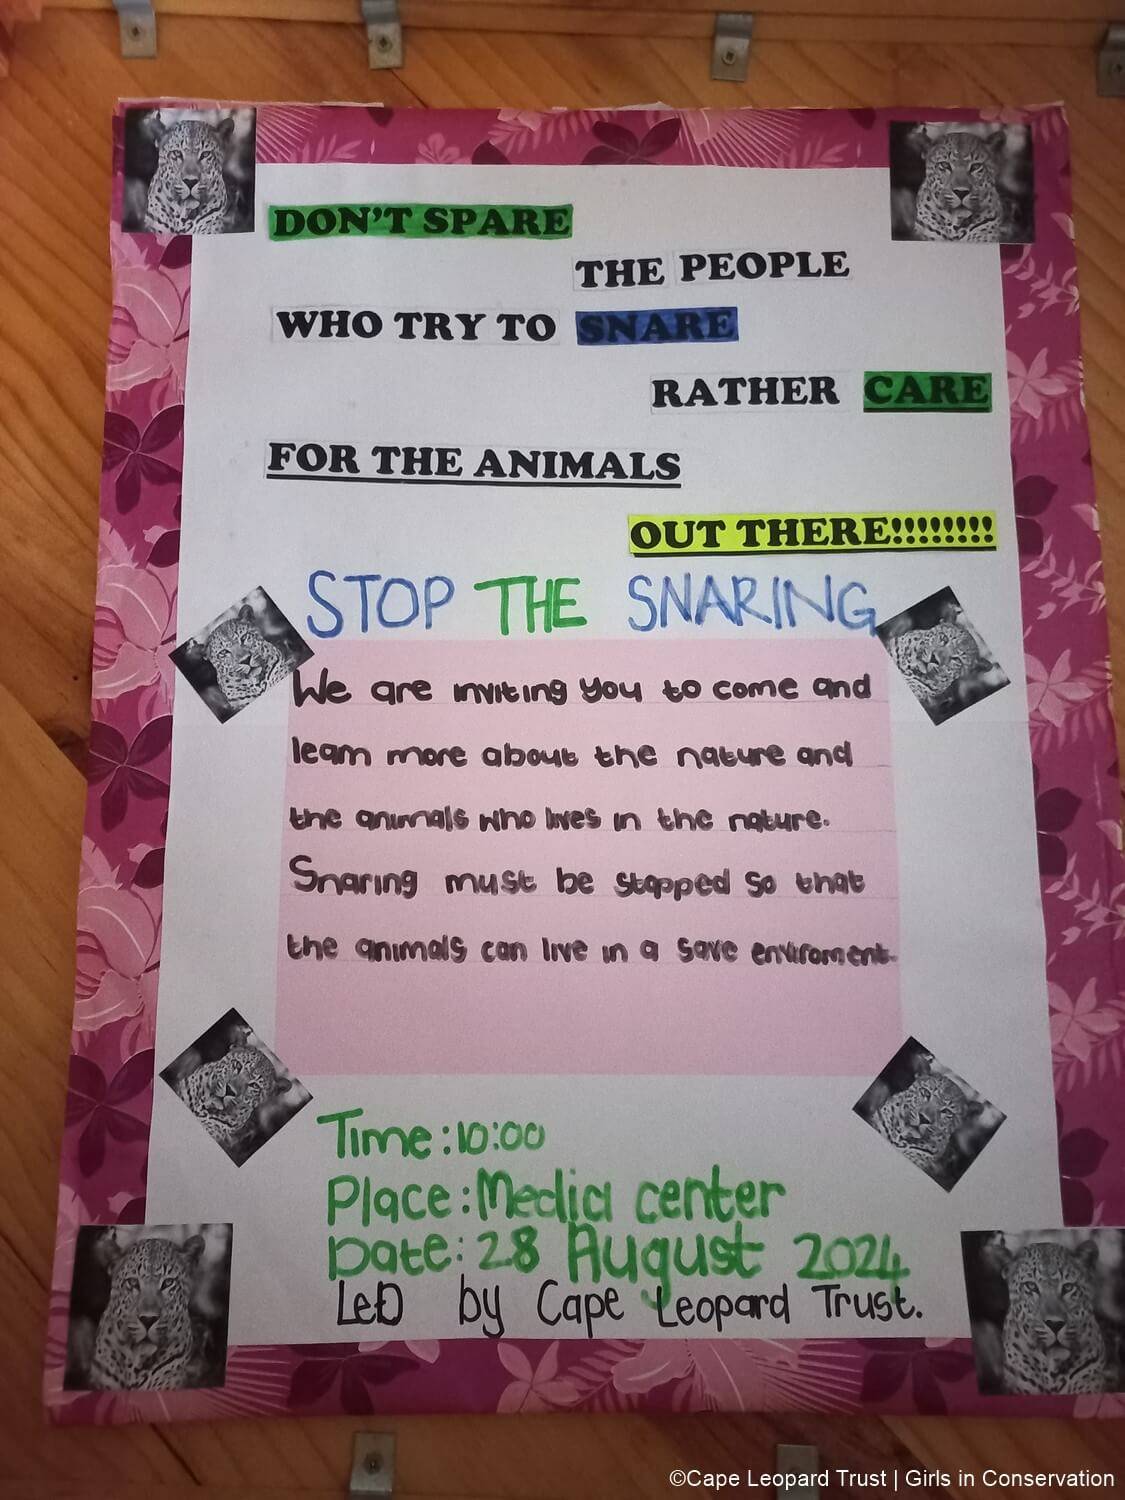 DON'T SPARE
THE PEOPLE
WHO TRY TO SNARE
RATHER CARE
FOR THE ANIMALS
OUT THERE!!!!!!!!
STOP THE SNARING
We are inviting you to come and
learn more about the nature and
the animals who lives in the nature.
Snaring must be stopped so that
the animals can live in a save enviroment.
Time:10:00
Place:Media center
Date:28 August 2024
LeD by Cape Leopard Trust.
©Cape Leopard Trust | Girls in Conservation